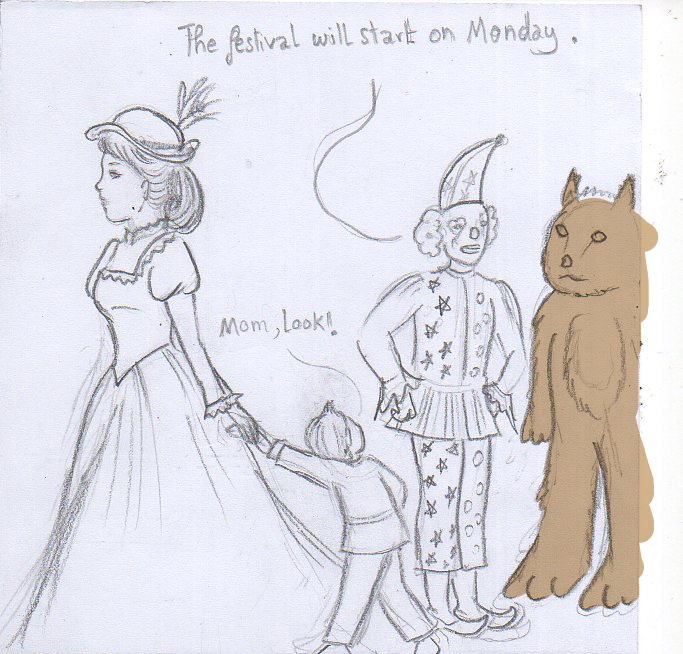 The festival will start on Monday.
Mom, Look!